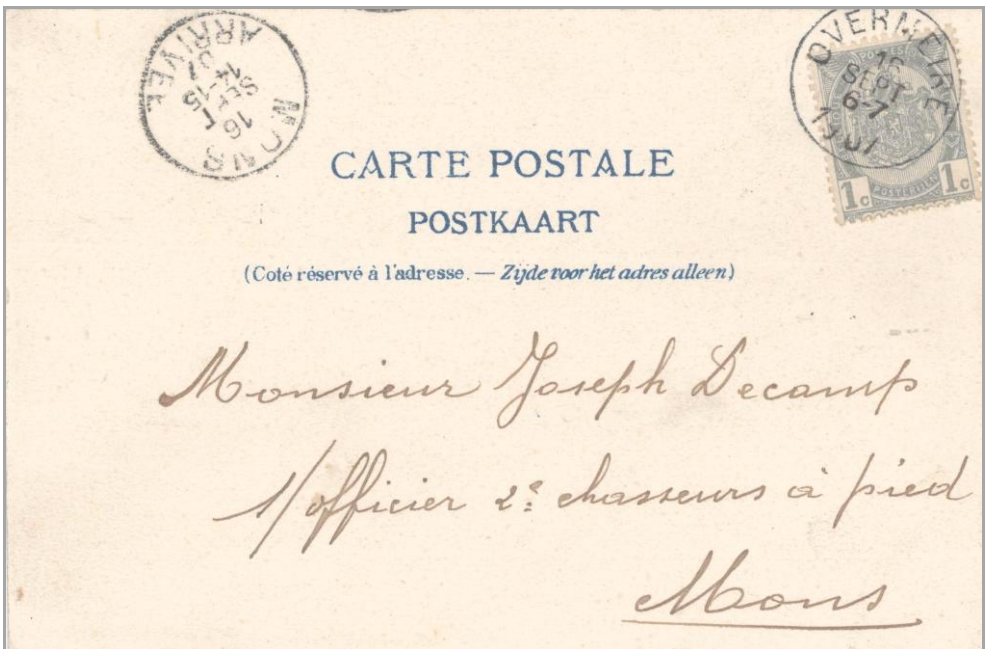 MONS
16
SEPT
14-15
07
ARRIVEE
OVERMEIRE
16
SEPT
6-7
1907
POSTERIJEN
1c 1c
CARTE POSTALE
POSTKAART
(Coté réservé à l'adresse. — Zijde voor het adres alleen)
Monsieur Joseph Decamp
s/officier 2e chasseurs à pied
Mons